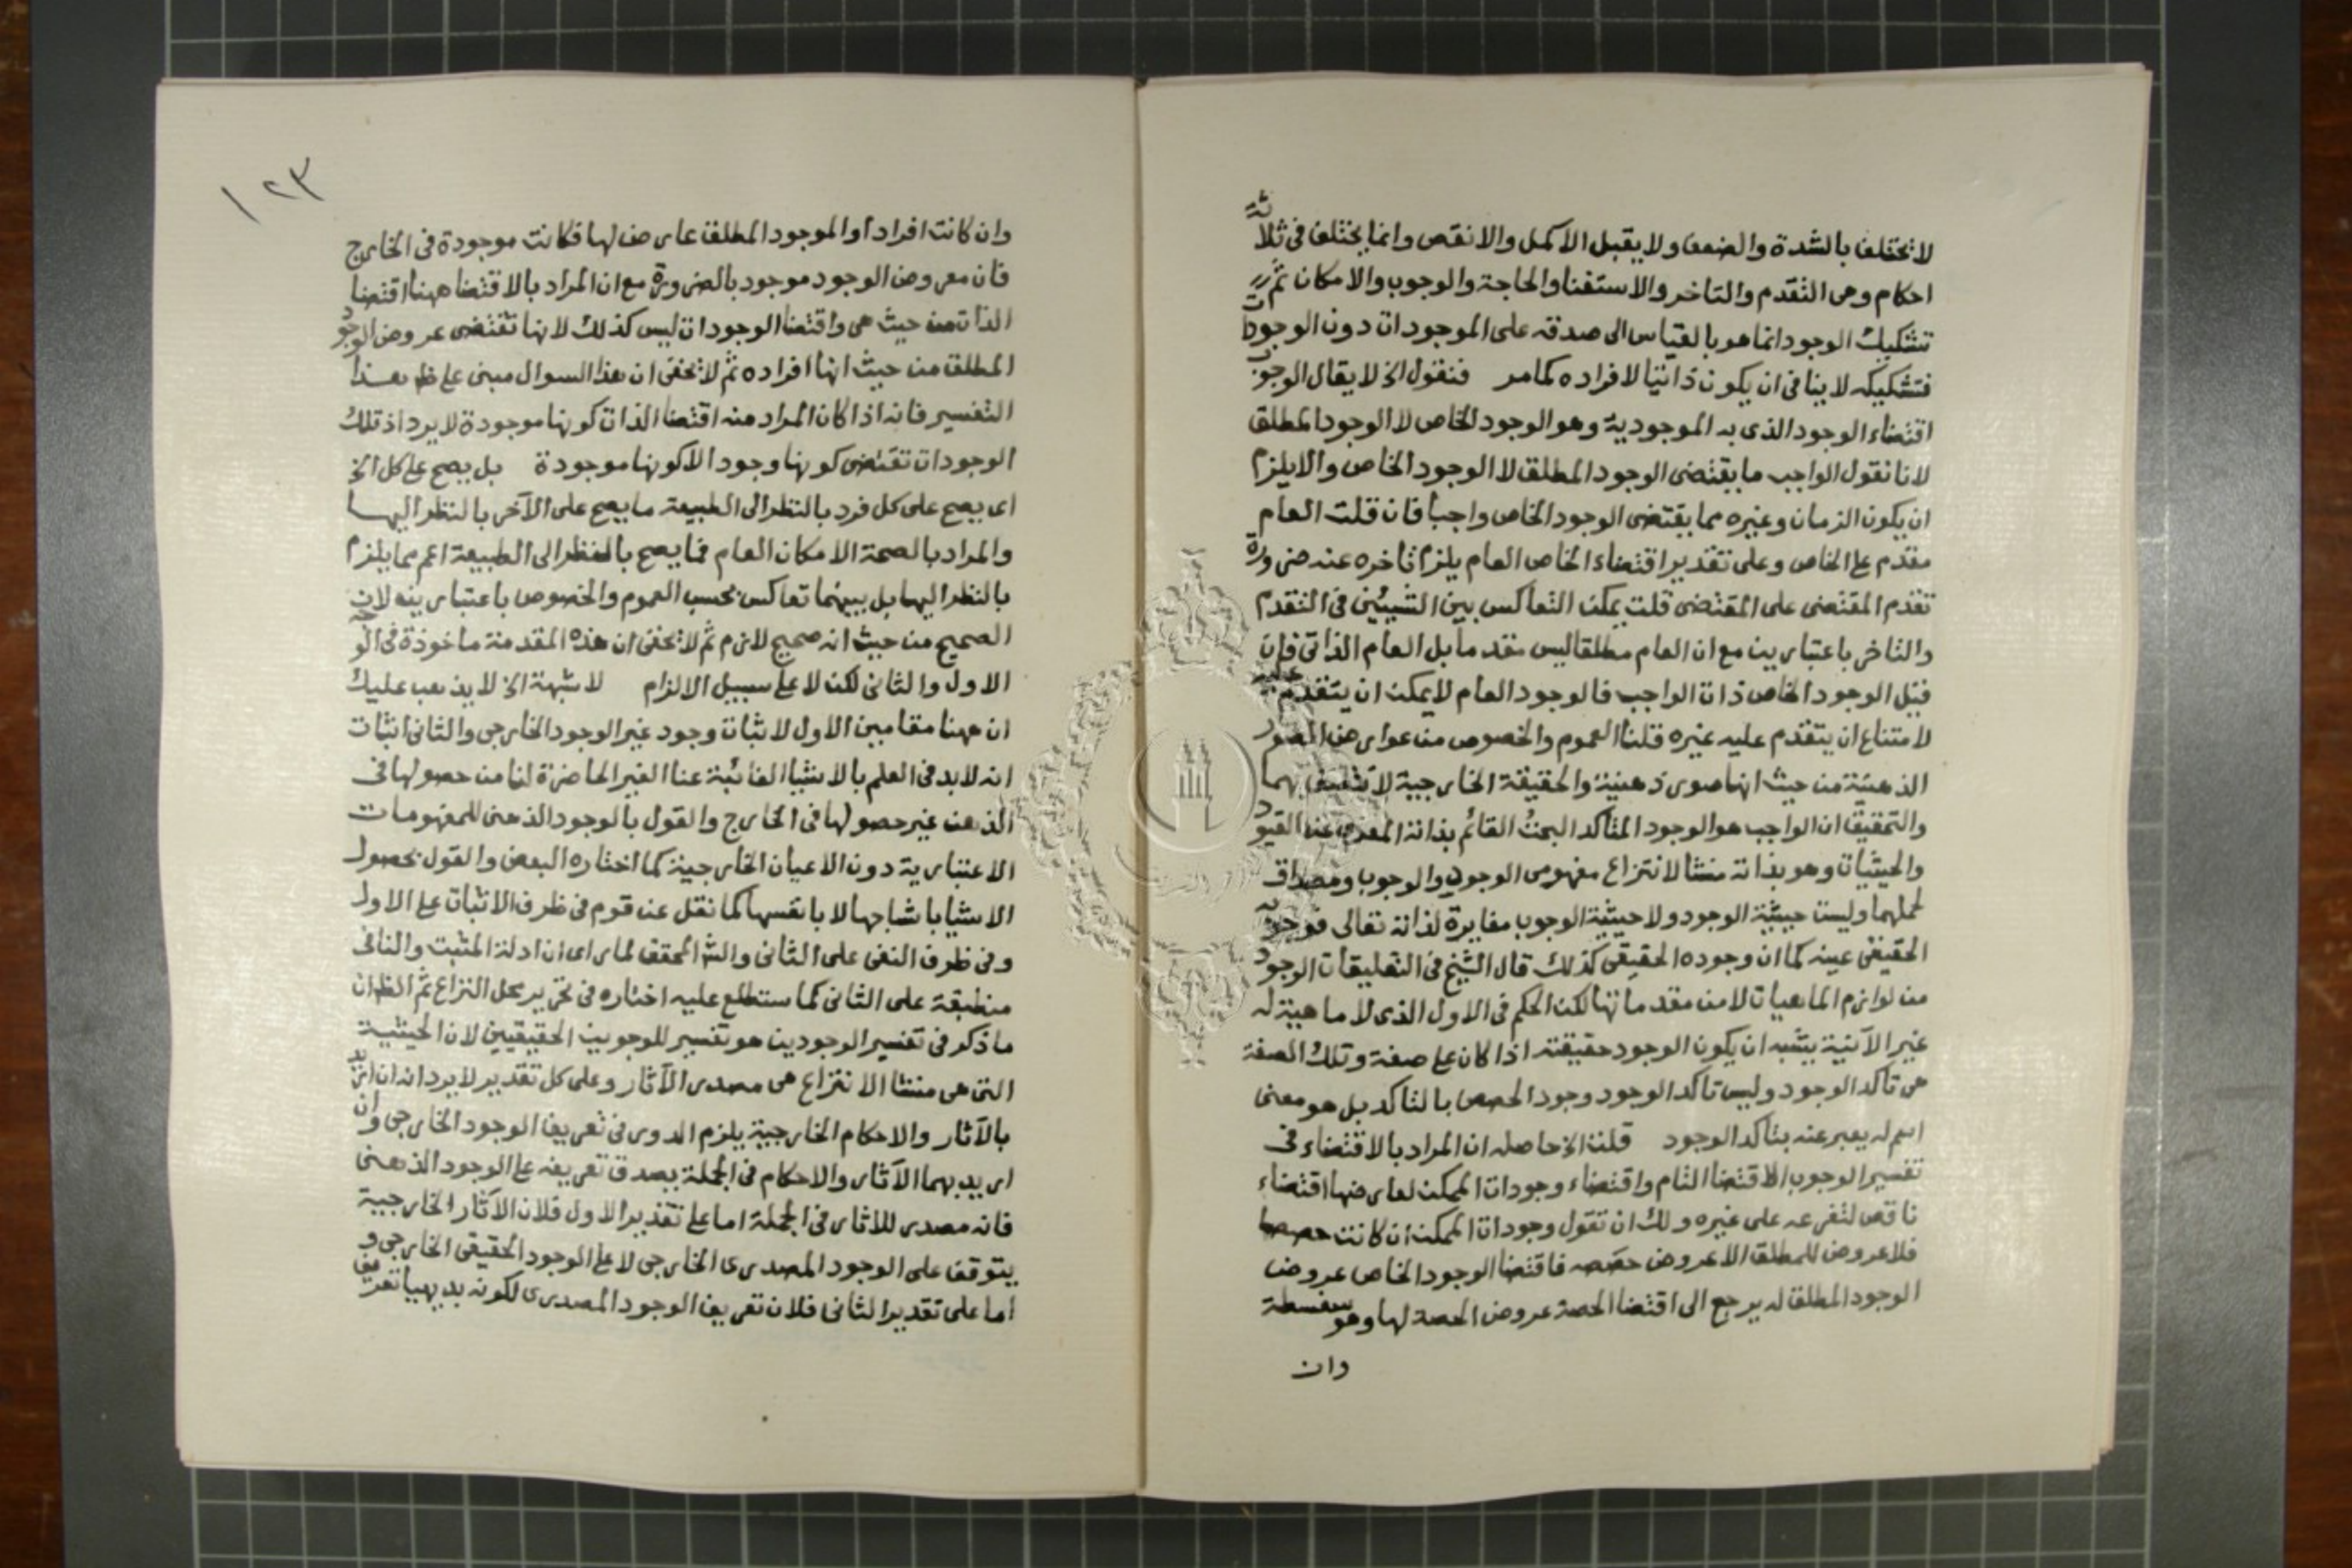 لا تختلف بالشدة والضعف ولا يقبل الاكمل والانقص وانما يختلف في ثلاثة
احكام وهي التقدم والتاخر والاستغنا والحاجة والوجوب والامكان ثم
تشكيك الوجود انما هو بالقياس الى صدقه على الموجودات دون الوجودات
فتشكيكه لا ينافي ان يكون ذاتيا لافراده كما مر فنقول الخ لا يقال الوجوب
اقتضاء الوجود الذي به الموجودية وهو الوجود الخاص لا الوجود المطلق
لانا نقول الواجب ما يقتضى الوجود المطلق لا الوجود الخاص والا يلزم
ان يكون الزمان وغيره مما يقتضى الوجود الخاص واجبا فان قلت العام
مقدم على الخاص وعلى تقدير اقتضاء الخاص العام يلزم تاخره عنه ضرورة
تقدم المقتضى على المقتضى قلت يمكن التعاكس بين الشيئين في التقدم
والتاخر باعتبارين مع ان العام مطلقا ليس مقدما بل العام الذاتى فان
قيل الوجود الخاص ذات الواجب فالوجود العام لا يمكن ان يتقدم عليه
لامتناع ان يتقدم عليه غيره قلنا العموم والخصوص من عوارض الصور
الذهنية من حيث انها صور ذهنية والحقيقة الخارجية لا تتصف بهما
والتحقيق ان الواجب هو الوجود المتاكد البحت القائم بذاته المعرى عن القيود
والحيثيات وهو بذاته منشا لانتزاع مفهومى الوجود والوجوب ومصداق
لحملهما وليست حيثية الوجود ولا حيثية الوجوب مغايرة لذاته تعالى فوجوبه
الحقيقى عينه كما ان وجوده الحقيقى كذلك قال الشيخ في التعليقات الوجود
من لوازم الماهيات لا من مقدماتها لكن الحكم في الاول الذى لا ماهية له
غير الآنية يشبه ان يكون الوجود حقيقته اذا كان على صفة وتلك الصفة
هى تاكد الوجود وليس تاكد الوجود وجود الخصص بالتاكد بل هو معنى
اسم له يعبر عنه بتاكد الوجود قلنا الخ حاصله ان المراد بالاقتضاء في
تفسير الوجوب الاقتضا التام واقتضاء وجودات الممكن لعارضها اقتضاء
ناقص لتفرعه على غيره ولك ان تقول وجودات الممكن ان كانت حصصا
فلا عروض للمطلق الا عروض حصصه فاقتضا الوجود الخاص عروض
الوجود المطلق له يرجع الى اقتضا الحصة عروض الحصة لها وهو سفسطة
وان
١٢٣
وان كانت افرادا والوجود المطلق عارض لها فكانت موجودة في الخارج
فان معروض الوجود موجود بالضرورة مع ان المراد بالاقتضا ههنا اقتضا
الذات من حيث هى واقتضا الوجودات ليس كذلك لانها تقتضى عروض الوجود
المطلق من حيث انها افراده ثم لا تخفى ان هذا السوال مبنى على ظ هذا
التفسير فانه اذا كان المراد منه اقتضا الذات كونها موجودة لا يرد اذ تلك
الوجودات تقتضى كونها وجود الا كونها موجودة بل يصح على كل الخ
اى يصح على كل فرد بالنظر الى الطبيعة ما يصح على الآخر بالنظر اليها
والمراد بالصحة الامكان العام فما يصح بالنظر الى الطبيعة اعم مما يلزم
بالنظر اليها بل بينهما تعاكس بحسب العموم والخصوص باعتبارين لان
الصحيح من حيث انه صحيح لازم ثم لا تخفى ان هذه المقدمة ماخوذة في الوجه
الاول والثانى لكن لا على سبيل الالزام لا شبهة الخ لا يذهب عليك
ان ههنا مقامين الاول لاثبات وجود غير الوجود الخارجى والثانى اثبات
انه لا بد في العلم بالاشيا الغائبة عنا الغير الحاضرة لنا من حصولها في
الذهن غير حصولها في الخارج والقول بالوجود الذهنى للمفهومات
الاعتبارية دون الاعيان الخارجية كما اختاره البعض والقول بحصول
الاشيا باشباحها لا بانفسها كما نقل عن قوم في ظرف الاثبات على الاول
وفي ظرف النفى على الثانى والش المحقق لما راى ان ادلة المثبت والنافى
منطبقة على الثانى كما ستطلع عليه اختاره في تحرير محل النزاع ثم الظ ان
ما ذكر في تفسير الوجودين هو تفسير للوجودين الحقيقيين لان الحيثية
التى هى منشا الانتزاع هى مصدر الآثار وعلى كل تقدير لا يرد انه ان اريد
بالآثار والاحكام الخارجية يلزم الدور في تعريف الوجود الخارجى وان
اريد بهما الآثار والاحكام في الجملة يصدق تعريفه على الوجود الذهنى
فانه مصدر للاثار في الجملة اما على تقدير الاول فلان الآثار الخارجية
يتوقف على الوجود المصدرى الخارجى لا على الوجود الحقيقى الخارجى و
اما على تقدير الثانى فلان تعريف الوجود المصدرى لكونه بديهيا تعريف